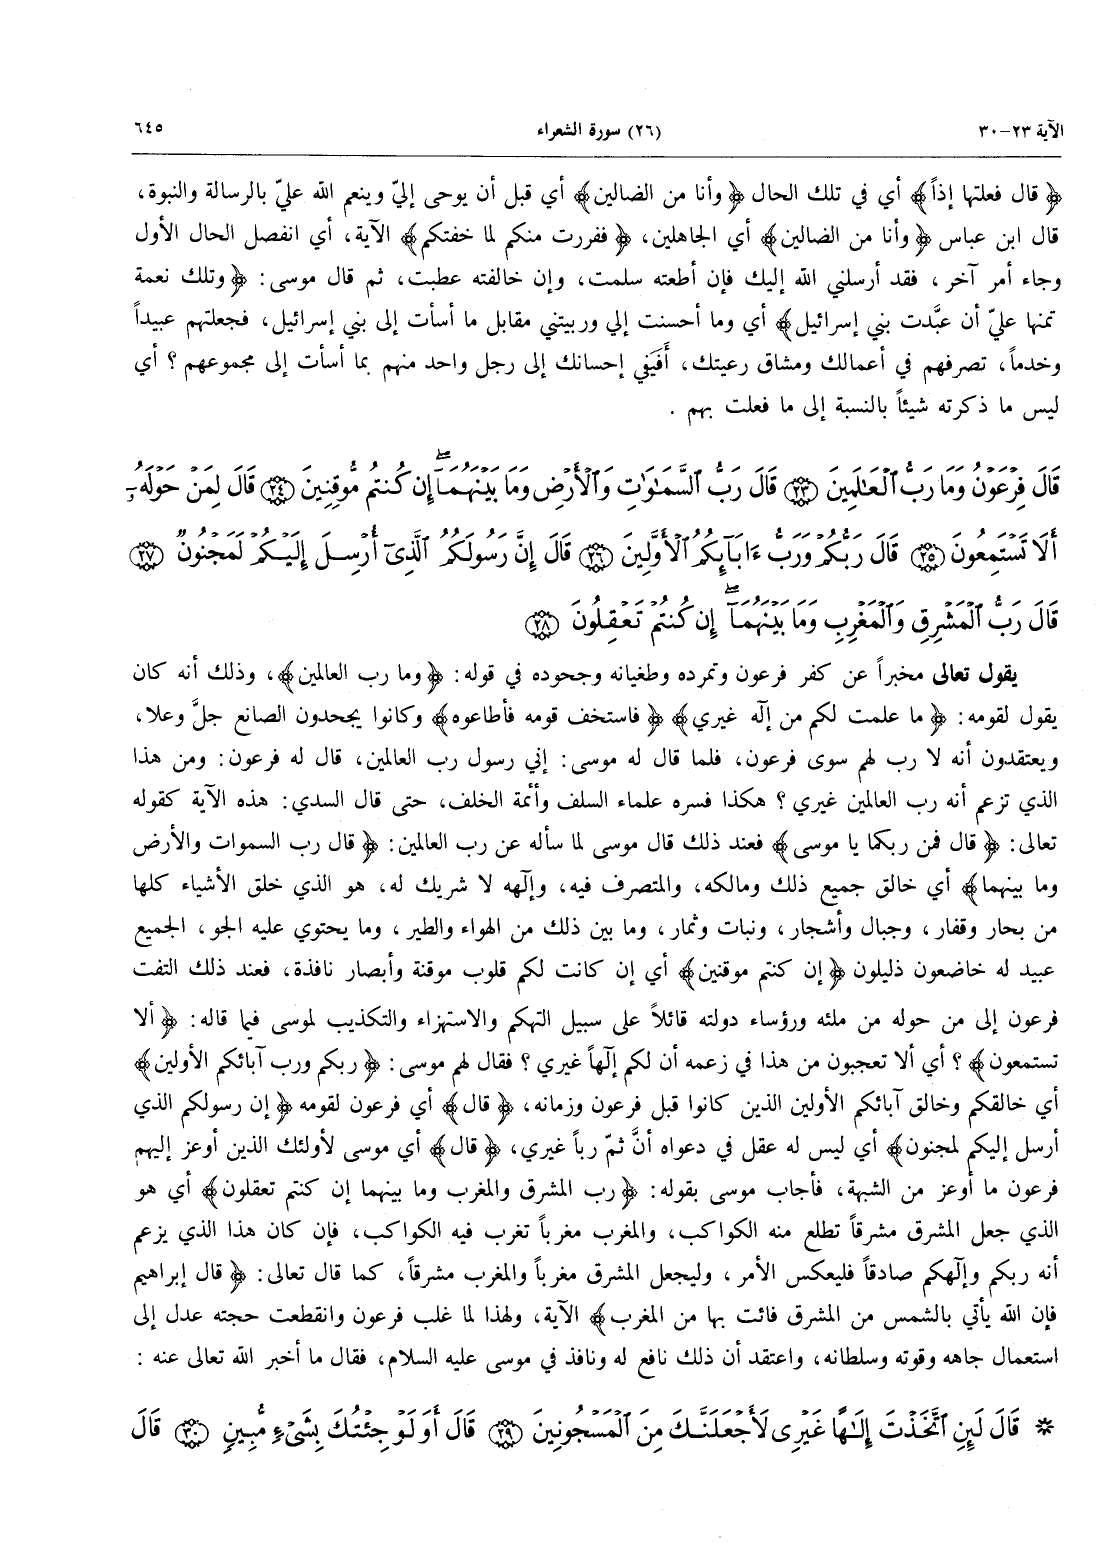 الآية ٢٣-٣٠ (٢٦) سورة الشعراء ٦٤٥
﴿ قال فعلتها إذاً﴾ أي في تلك الحال ﴿وأنا من الضالين﴾ أي قبل أن يوحى إليّ وينعم الله عليّ بالرسالة والنبوة،
قال ابن عباس ﴿وأنا من الضالين﴾ أي الجاهلين، ﴿ففررت منكم لما خفتكم﴾ الآية، أي انفصل الحال الأول
وجاء أمر آخر، فقد أرسلني الله إليك فإن أطعته سلمت، وإن خالفته عطبت، ثم قال موسى: ﴿وتلك نعمة
تمنها عليّ أن عبَّدت بني إسرائيل﴾ أي وما أحسنت إلي وربيتني مقابل ما أسأت إلى بني إسرائيل، فجعلتهم عبيداً
وخدماً، تصرفهم في أعمالك ومشاق رعيتك، أَفَيَفي إحسانك إلى رجل واحد منهم بما أسأت إلى مجموعهم؟ أي
ليس ما ذكرته شيئاً بالنسبة إلى ما فعلت بهم .
قَالَ فِرْعَوْنُ وَمَا رَبُّ ٱلْعَـٰلَمِينَ ﴿٢٣﴾ قَالَ رَبُّ ٱلسَّمَـٰوَٰتِ وَٱلْأَرْضِ وَمَا بَيْنَهُمَآ ۖ إِن كُنتُم مُّوقِنِينَ ﴿٢٤﴾ قَالَ لِمَنْ حَوْلَهُۥٓ
أَلَا تَسْتَمِعُونَ ﴿٢٥﴾ قَالَ رَبُّكُمْ وَرَبُّ ءَابَآئِكُمُ ٱلْأَوَّلِينَ ﴿٢٦﴾ قَالَ إِنَّ رَسُولَكُمُ ٱلَّذِىٓ أُرْسِلَ إِلَيْكُمْ لَمَجْنُونٌ ﴿٢٧﴾
قَالَ رَبُّ ٱلْمَشْرِقِ وَٱلْمَغْرِبِ وَمَا بَيْنَهُمَآ ۖ إِن كُنتُمْ تَعْقِلُونَ ﴿٢٨﴾
يقول تعالى مخبراً عن كفر فرعون وتمرده وطغيانه وجحوده في قوله: ﴿وما رب العالمين﴾، وذلك أنه كان
يقول لقومه: ﴿ما علمت لكم من إلٰه غيري﴾ ﴿فاستخف قومه فأطاعوه﴾ وكانوا يجحدون الصانع جلَّ وعلا،
ويعتقدون أنه لا رب لهم سوى فرعون، فلما قال له موسى: إني رسول رب العالمين، قال له فرعون: ومن هذا
الذي تزعم أنه رب العالمين غيري؟ هكذا فسره علماء السلف وأئمة الخلف، حتى قال السدي: هذه الآية كقوله
تعالى: ﴿قال فمن ربكما يا موسى﴾ فعند ذلك قال موسى لما سأله عن رب العالمين: ﴿قال رب السموات والأرض
وما بينهما﴾ أي خالق جميع ذلك ومالكه، والمتصرف فيه، وإلٰهه لا شريك له، هو الذي خلق الأشياء كلها
من بحار وقفار، وجبال وأشجار، ونبات وثمار، وما بين ذلك من الهواء والطير، وما يحتوي عليه الجو، الجميع
عبيد له خاضعون ذليلون ﴿إن كنتم موقنين﴾ أي إن كانت لكم قلوب موقنة وأبصار نافذة، فعند ذلك التفت
فرعون إلى من حوله من ملئه ورؤساء دولته قائلاً على سبيل التهكم والاستهزاء والتكذيب لموسى فيما قاله: ﴿ألا
تستمعون﴾؟ أي ألا تعجبون من هذا في زعمه أن لكم إلٰهاً غيري؟ فقال لهم موسى: ﴿ربكم ورب آبائكم الأولين﴾
أي خالقكم وخالق آبائكم الأولين الذين كانوا قبل فرعون وزمانه، ﴿قال﴾ أي فرعون لقومه ﴿إن رسولكم الذي
أرسل إليكم لمجنون﴾ أي ليس له عقل في دعواه أنَّ ثمّ رباً غيري، ﴿قال﴾ أي موسى لأولئك الذين أوعز إليهم
فرعون ما أوعز من الشبهة، فأجاب موسى بقوله: ﴿رب المشرق والمغرب وما بينهما إن كنتم تعقلون﴾ أي هو
الذي جعل المشرق مشرقاً تطلع منه الكواكب، والمغرب مغرباً تغرب فيه الكواكب، فإن كان هذا الذي يزعم
أنه ربكم وإلٰهكم صادقاً فليعكس الأمر، وليجعل المشرق مغرباً والمغرب مشرقاً، كما قال تعالى: ﴿قال إبراهيم
فإن الله يأتي بالشمس من المشرق فائت بها من المغرب﴾ الآية، ولهذا لما غلب فرعون وانقطعت حجته عدل إلى
استعمال جاهه وقوته وسلطانه، واعتقد أن ذلك نافع له ونافذ في موسى عليه السلام، فقال ما أخبر الله تعالى عنه :
* قَالَ لَئِنِ ٱتَّخَذْتَ إِلَـٰهًا غَيْرِى لَأَجْعَلَنَّكَ مِنَ ٱلْمَسْجُونِينَ ﴿٢٩﴾ قَالَ أَوَلَوْ جِئْتُكَ بِشَىْءٍ مُّبِينٍ ﴿٣٠﴾ قَالَ